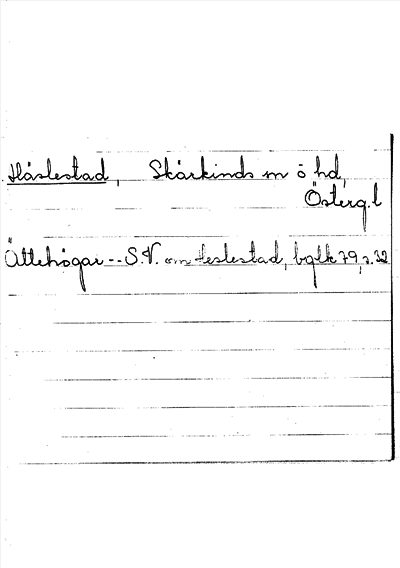 Häslestad, Skärkinds sn o hd,
Österg.l
Ättehögar -- S.V. om Heslestad, bglk 79, s. 32